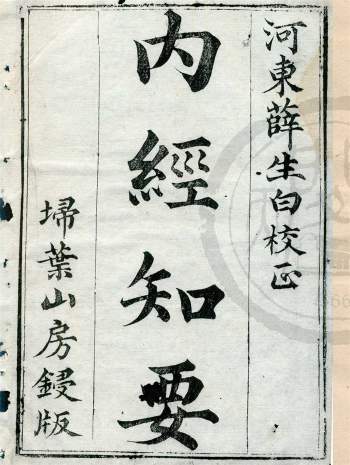 河東薛生白校正
內經知要
埽葉山房鋟版